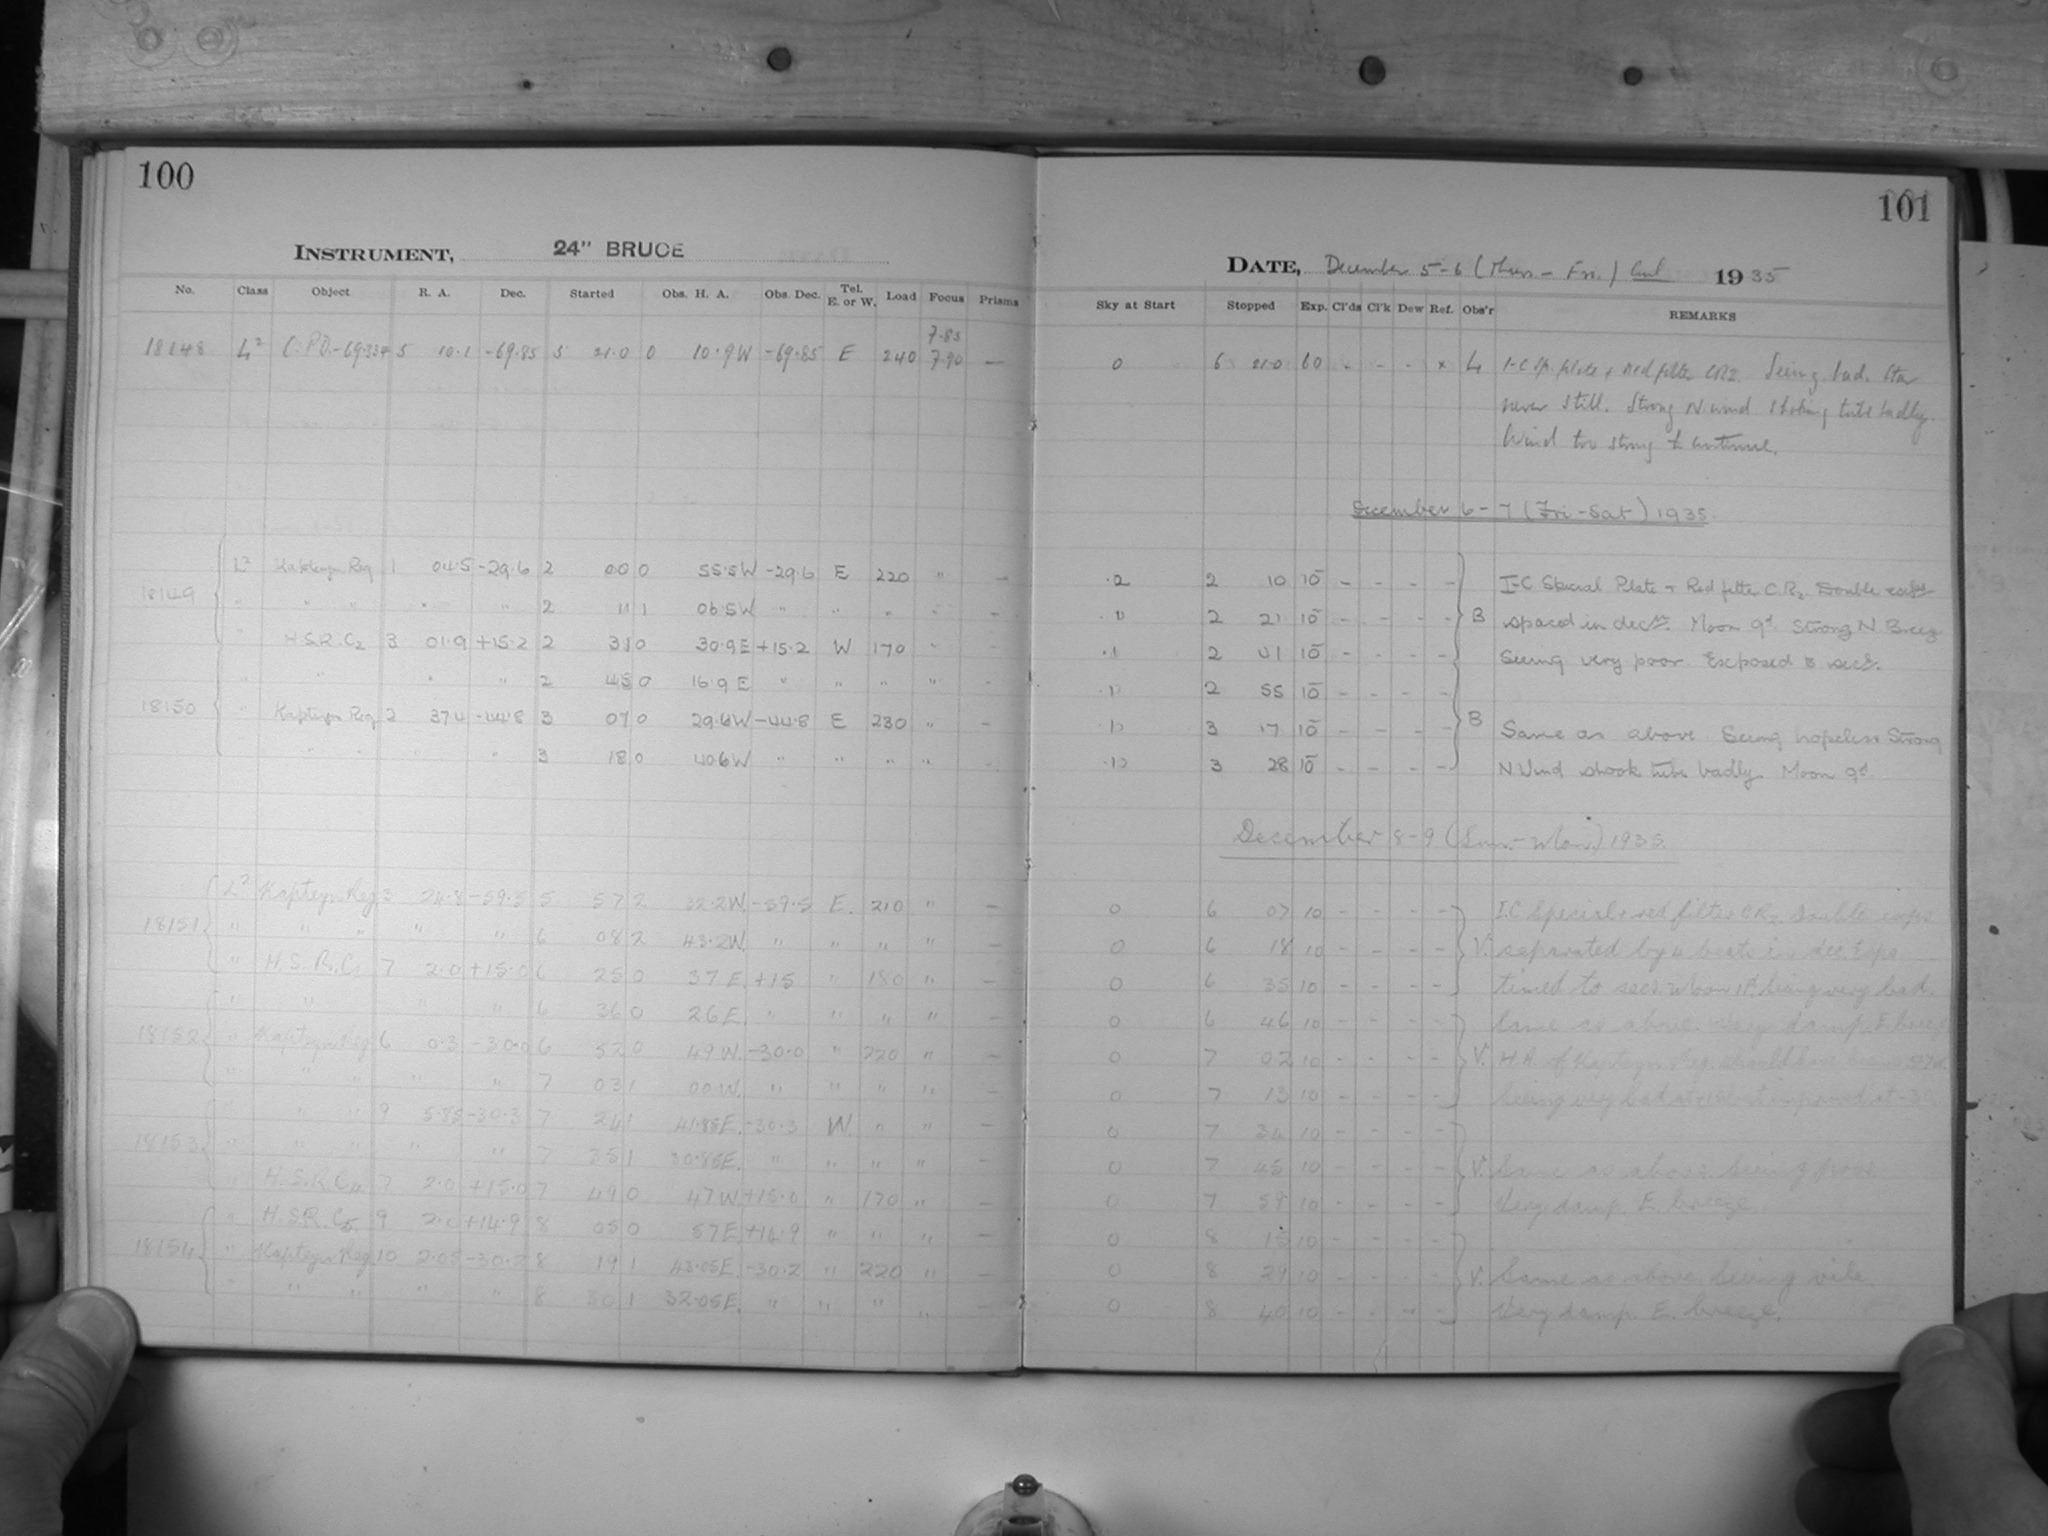 100
INSTRUMENT, 24" BRUCE
No. Class Object R. A. Dec. Started Obs. H. A. Obs. Dec. Tel. E. or W. Load Focus Prisms
7.85
18148 L² C.P.D.-69.334 5 10.1 -69.85 5 21.0 0 10.9W -69.85 E 240 7.90 —
L² Kapteyn Reg 1 04.5 -29.6 2 00 0 55.5W -29.6 E 220 " —
18149 " " " " " 2 11 1 06.5W " " " " —
" H.S.R.C₂ 3 01.9 +15.2 2 31 0 30.9E +15.2 W 170 " —
" " " " 2 45 0 16.9E " " " " -
18150 " Kapteyn Reg 2 37.4 -44.8 3 07 0 29.6W -44.8 E 230 " —
" " " 3 18 0 40.6W " " " " —
L² Kapteyn Reg 3 24.8 -59.5 5 57 2 32.2W. -59.5 E. 210 " —
18151 " " " " " 6 08 2 43.2W. " " " " —
" H.S.R.C. 7 2.0 +15.0 6 25 0 37E. +15 " 180 " —
" " " " 6 36 0 26E. " " " " —
18152 " Kapteyn Reg 6 0.3 -30.0 6 52 0 49W. -30.0 " 220 " —
" " " " " 7 03 1 00W. " " " " —
" " " 9 5.85 -30.3 7 24 1 41.85E. -30.3 W. " " —
18153 " " " " " 7 35 1 30.85E. " " " " —
" H.S.R.C₄ 7 2.0 +15.0 7 49 0 47W +15.0 " 170 " —
" H.S.R.C₅. 9 2.0 +14.9 8 05 0 57E +14.9 " " " —
18154 " Kapteyn Reg 10 2.05 -30.2 8 19 1 43.05E. -30.2 " 220 " —
" " " " " 8 30 1 32.05E. " " " " —
101
DATE, December 5-6 (Thurs - Fri.) 1935
Sky at Start Stopped Exp. Cl'ds Cl'k Dew Ref. Obs'r REMARKS
0 6 21.0 60 - - - x L I-C Sp. plate + red filter CR2. Seeing bad. Star
never still. Strong N wind shaking tube badly.
Wind too strong to continue.
December 6-7 (Fri-Sat) 1935.
.2 2 10 10 - - - - I-C Special Plate + Red filter C.R₂ Double
2 21 10 - - - - B spaced in decn. Moon 9d. Strong N Breeze
.1 2 41 10 - - - - Seeing very poor. Exposed
2 55 10 - - - -
3 17 10 - - - - B Same as above Seeing hopeless Strong
3 28 10 - - - - N Wind shook tube badly. Moon 9d.
December 8-9 (Sun.-Mon.) 1935.
0 6 07 10 - - - - I.C Special + red filter CR₂ Double exps
0 6 18 10 - - - - V. separated by 4 beats in dec. Exps
0 6 35 10 - - - - timed to secs. Moon Seeing very bad.
0 6 46 10 - - - - Same as above. Very damp E. breeze
0 7 02 10 - - - - V. H A of Kapteyn Reg should have been
0 7 13 10 - - - - Seeing very bad at but improved at
0 7 34 10 - - - -
0 7 45 10 - - - - V. Same as above. Seeing poor.
0 7 59 10 - - - - Very damp. E. breeze.
0 8 15 10 - - - -
0 8 29 10 - - - - V. Same as above. Seeing vile.
0 8 40 10 - - - - Very damp. E. breeze.